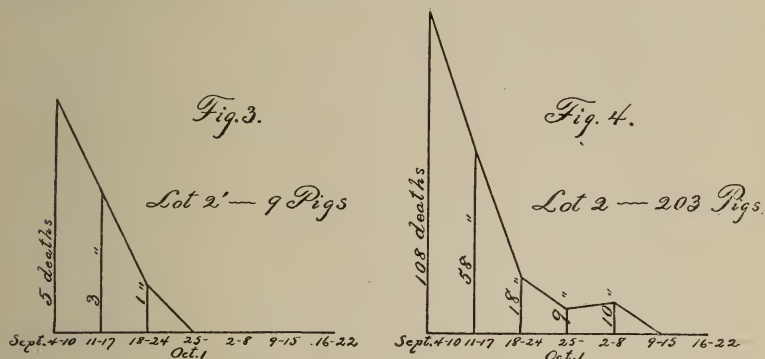 Fig. 3.
Lot 2' — 9 Pigs
5 deaths
3 "
1 "
Sept. 4-10 11-17 18-24 25- Oct. 1 2-8 9-15 16-22
Fig. 4.
Lot 2 — 203 Pigs.
108 deaths
58 "
18 "
9 "
10 "
Sept. 4-10 11-17 18-24 25- Oct. 1 2-8 9-15 16-22